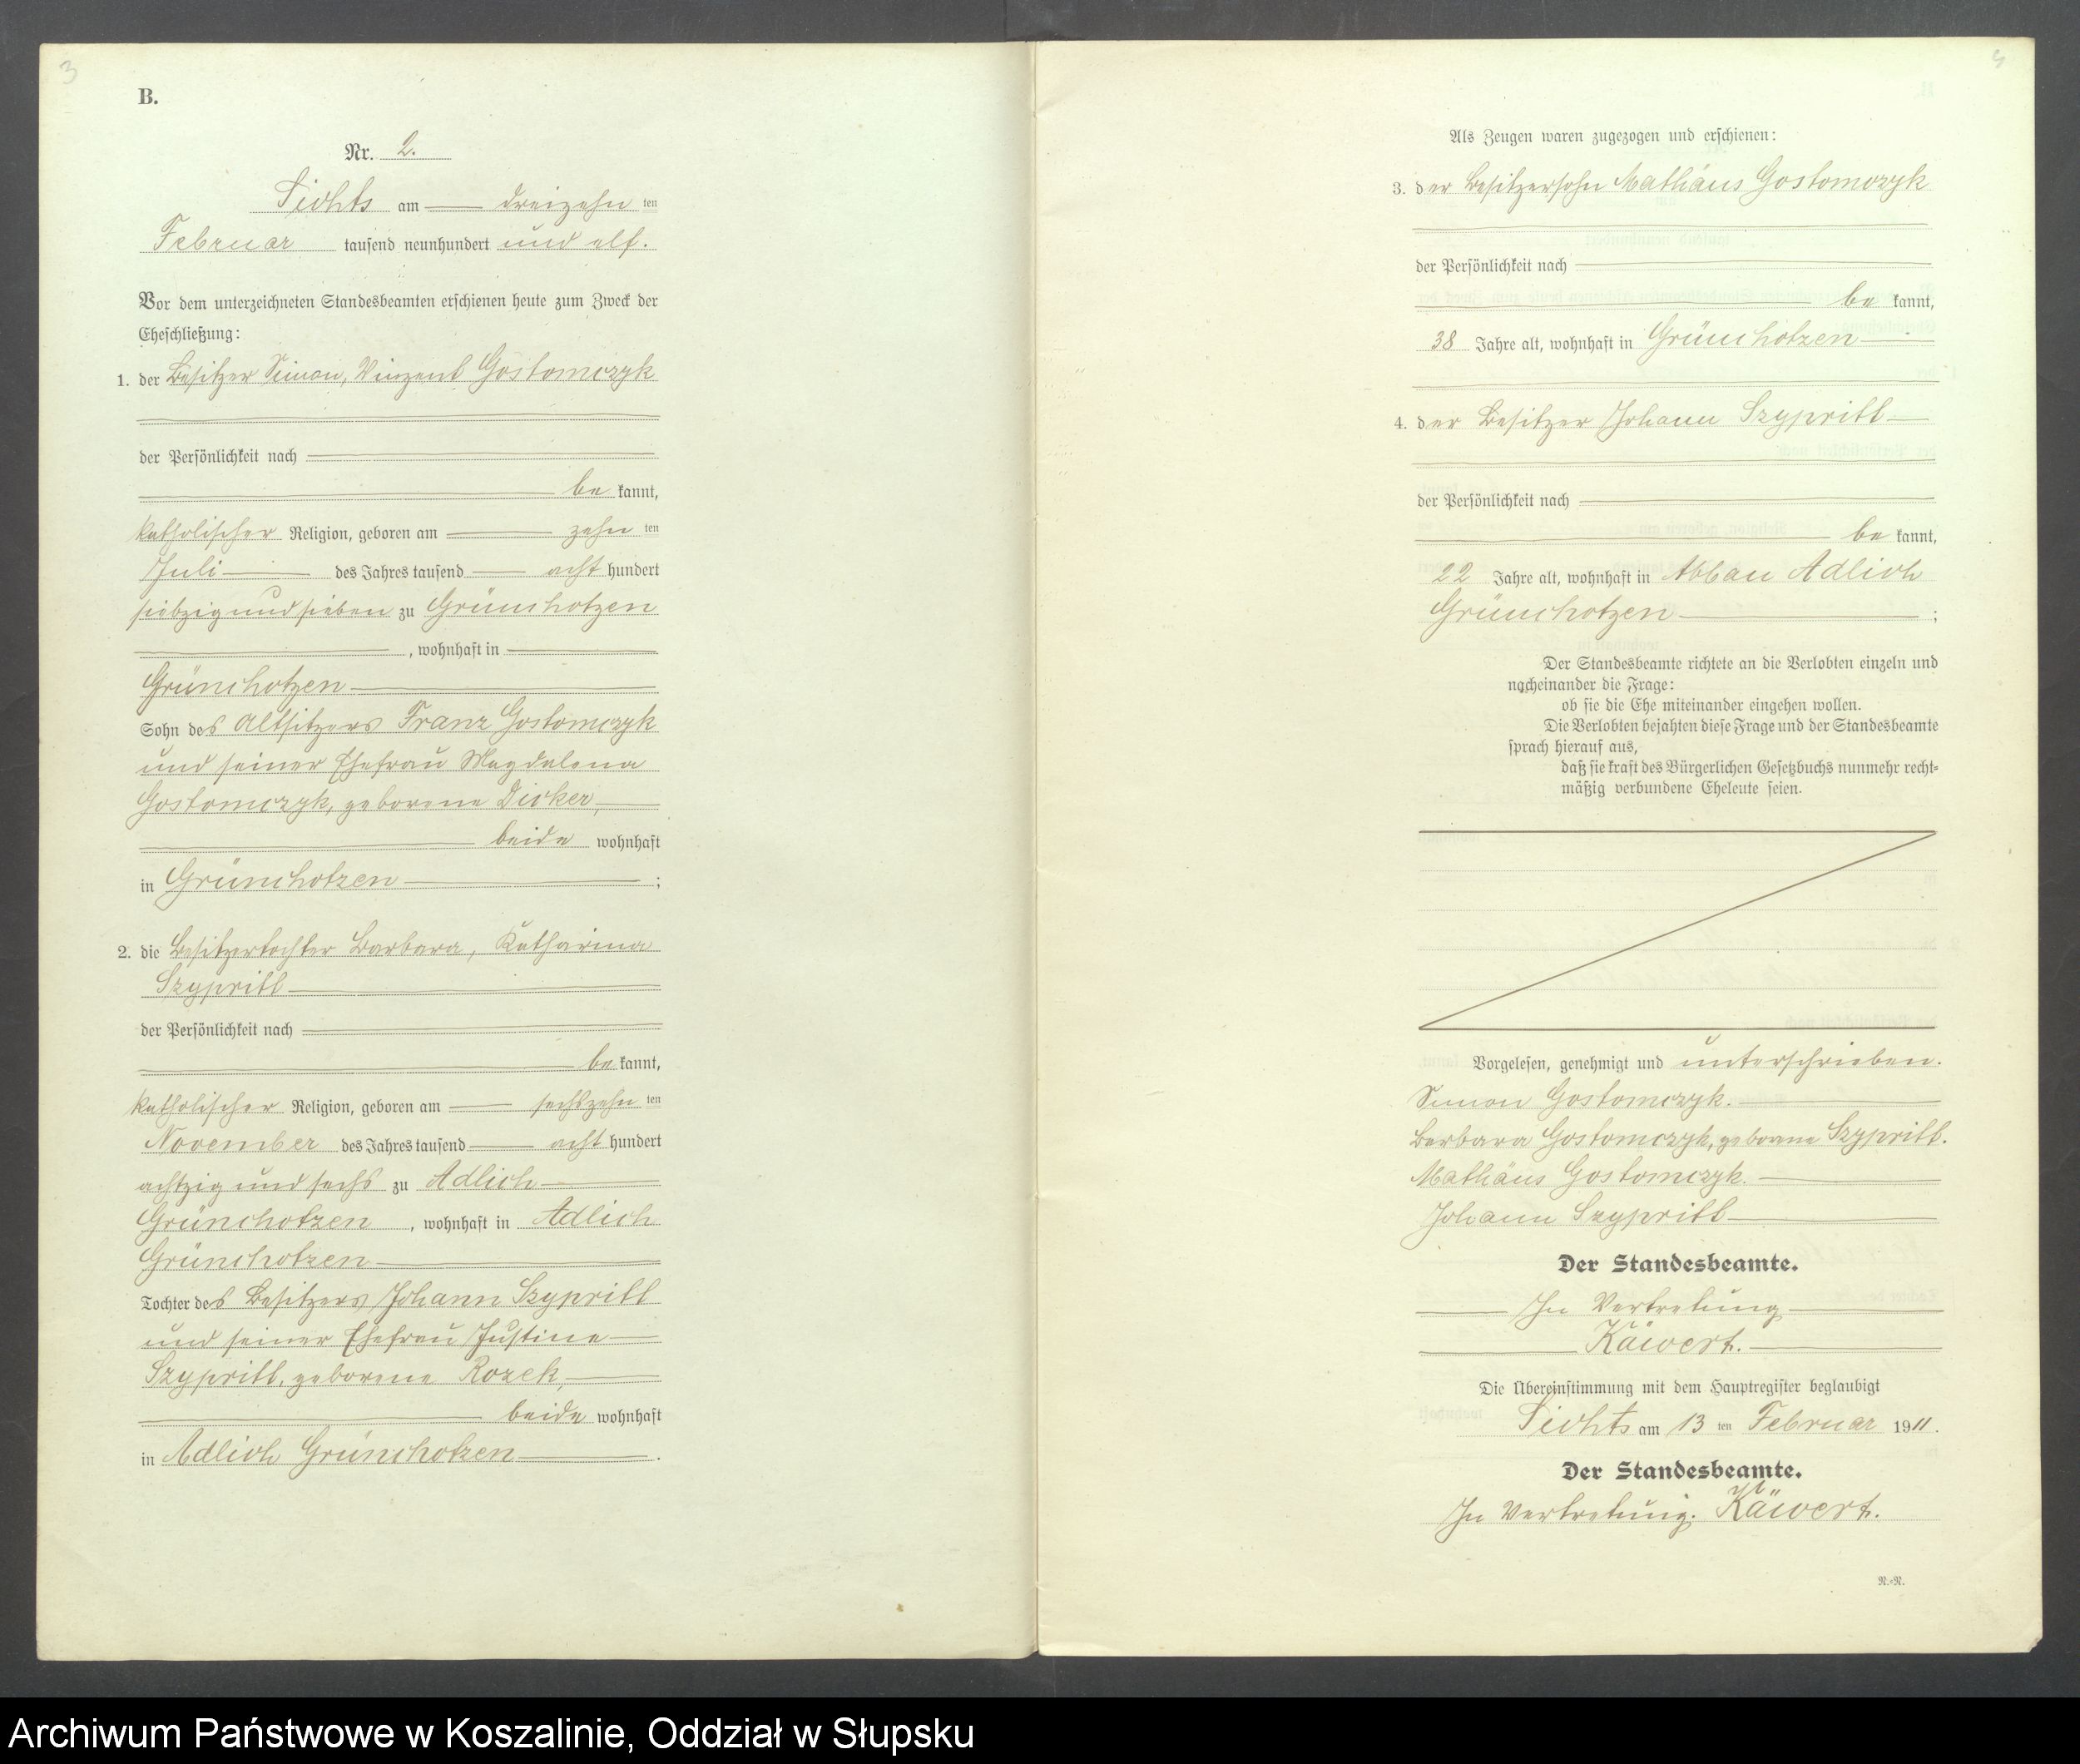 3
B.
Nr. 2.
Sichts am dreizehn ten
Februar tausend neunhundert und elf.
Vor dem unterzeichneten Standesbeamten erschienen heute zum Zweck der
Eheschließung:
1. der Besitzer Simon, Vinzent Gostomczyk
der Persönlichkeit nach
be kannt,
katholischer Religion, geboren am zehn ten
Juli des Jahres tausend acht hundert
siebzig und sieben zu Grünchotzen
, wohnhaft in
Grünchotzen
Sohn des Altsitzers Franz Gostomczyk
und seiner Ehefrau Magdalena
Gostomczyk, geborene Dicker,
beide wohnhaft
in Grünchotzen ;
2. die Besitzertochter Barbara, Katharina
Szypritt
der Persönlichkeit nach
be kannt,
katholischer Religion, geboren am sechszehn ten
November des Jahres tausend acht hundert
achtzig und sechs zu Adlich
Grünchotzen , wohnhaft in Adlich
Grünchotzen
Tochter des Besitzers Johann Szypritt
und seiner Ehefrau Justine
Szypritt, geborene Rozek,
beide wohnhaft
in Adlich Grünchotzen .
Als Zeugen waren zugezogen und erschienen:
3. der Besitzersohn Mathäus Gostomczyk
der Persönlichkeit nach
be kannt,
38 Jahre alt, wohnhaft in Grünchotzen
4. der Besitzer Johann Szypritt
der Persönlichkeit nach
be kannt,
22 Jahre alt, wohnhaft in Abbau Adlich
Grünchotzen ;
Der Standesbeamte richtete an die Verlobten einzeln und
nacheinander die Frage:
ob sie die Ehe miteinander eingehen wollen.
Die Verlobten bejahten diese Frage und der Standesbeamte
sprach hierauf aus,
daß sie kraft des Bürgerlichen Gesetzbuchs nunmehr recht-
mäßig verbundene Eheleute seien.
Vorgelesen, genehmigt und unterschrieben.
Simon Gostomczyk.
Barbara Gostomczyk, geborene Szypritt.
Mathäus Gostomczyk.
Johann Szypritt
Der Standesbeamte.
In Vertretung
Käwert.
Die Übereinstimmung mit dem Hauptregister beglaubigt
Sichts am 13 ten Februar 1911.
Der Standesbeamte.
In Vertretung. Käwert.
N.-N.
Archiwum Państwowe w Koszalinie, Oddział w Słupsku